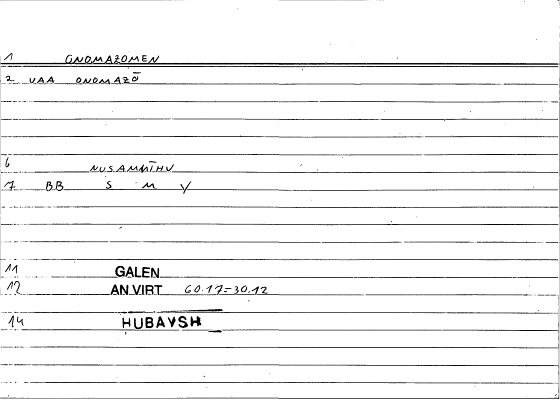 1 GNOMAZOMEN
2 VAA ONOMAZŌ
6 NUSAMMĪHU
7 BB S M Y
11 GALEN
12 AN.VIRT 60.17=30.12
14 HUBAYSH